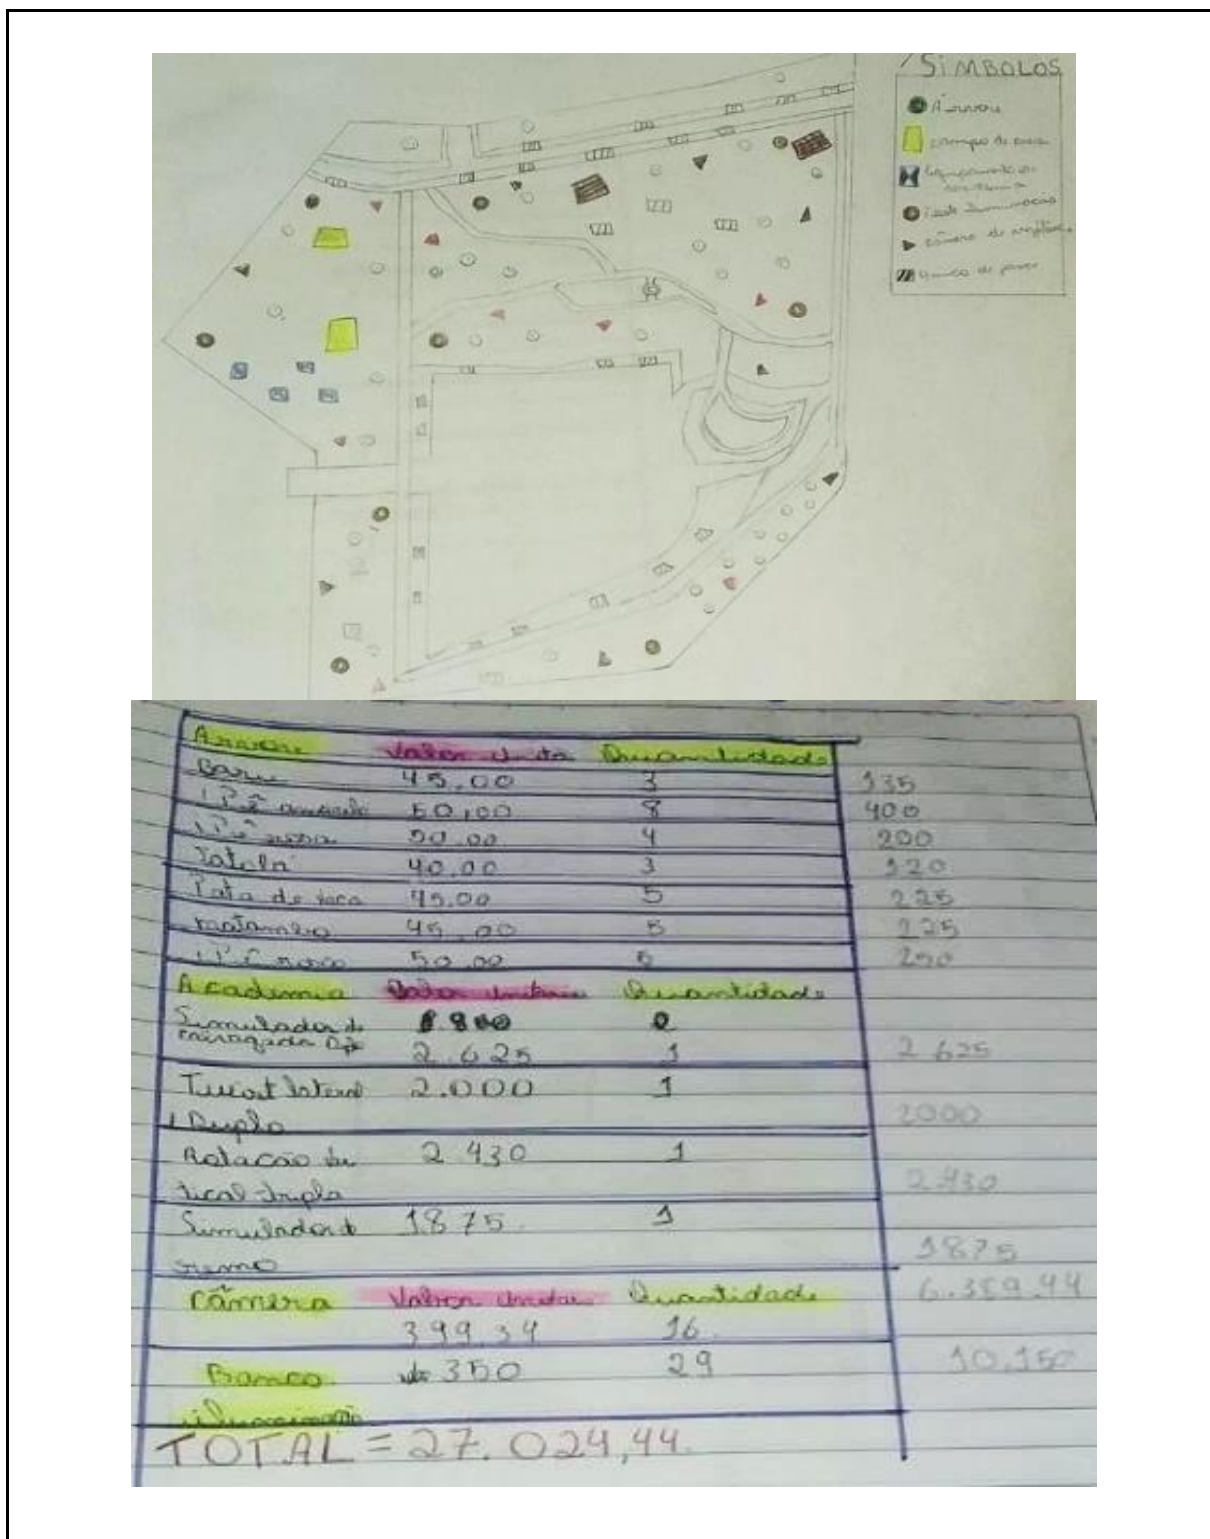 SÍMBOLOS
Árvore
campo de areia
Equipamento de academia
Poste Iluminação
câmera de
Banco de praça
Árvore Valor Unita Quantidade
Baru 45,00 3 135
IPê amarelo 50,00 8 400
IPê rosa 50,00 4 200
Jatobá 40,00 3 120
Pata de vaca 45,00 5 225
45,00 5 225
IPê roxo 50,00 5 250
Academia Valor Unitario Quantidade
Simulador de 0
cavalgada Dpl 2.625 1 2625
Twist lateral 2.000 1
Duplo 2000
Rotação ver 2430 1
tical tripla 2430
Simulador d 1875 1
remo 1875
câmera Valor Unitar Quantidade 6.389,44
399,34 16
Banco 350 29 10.150
iluminação
TOTAL = 27.024,44